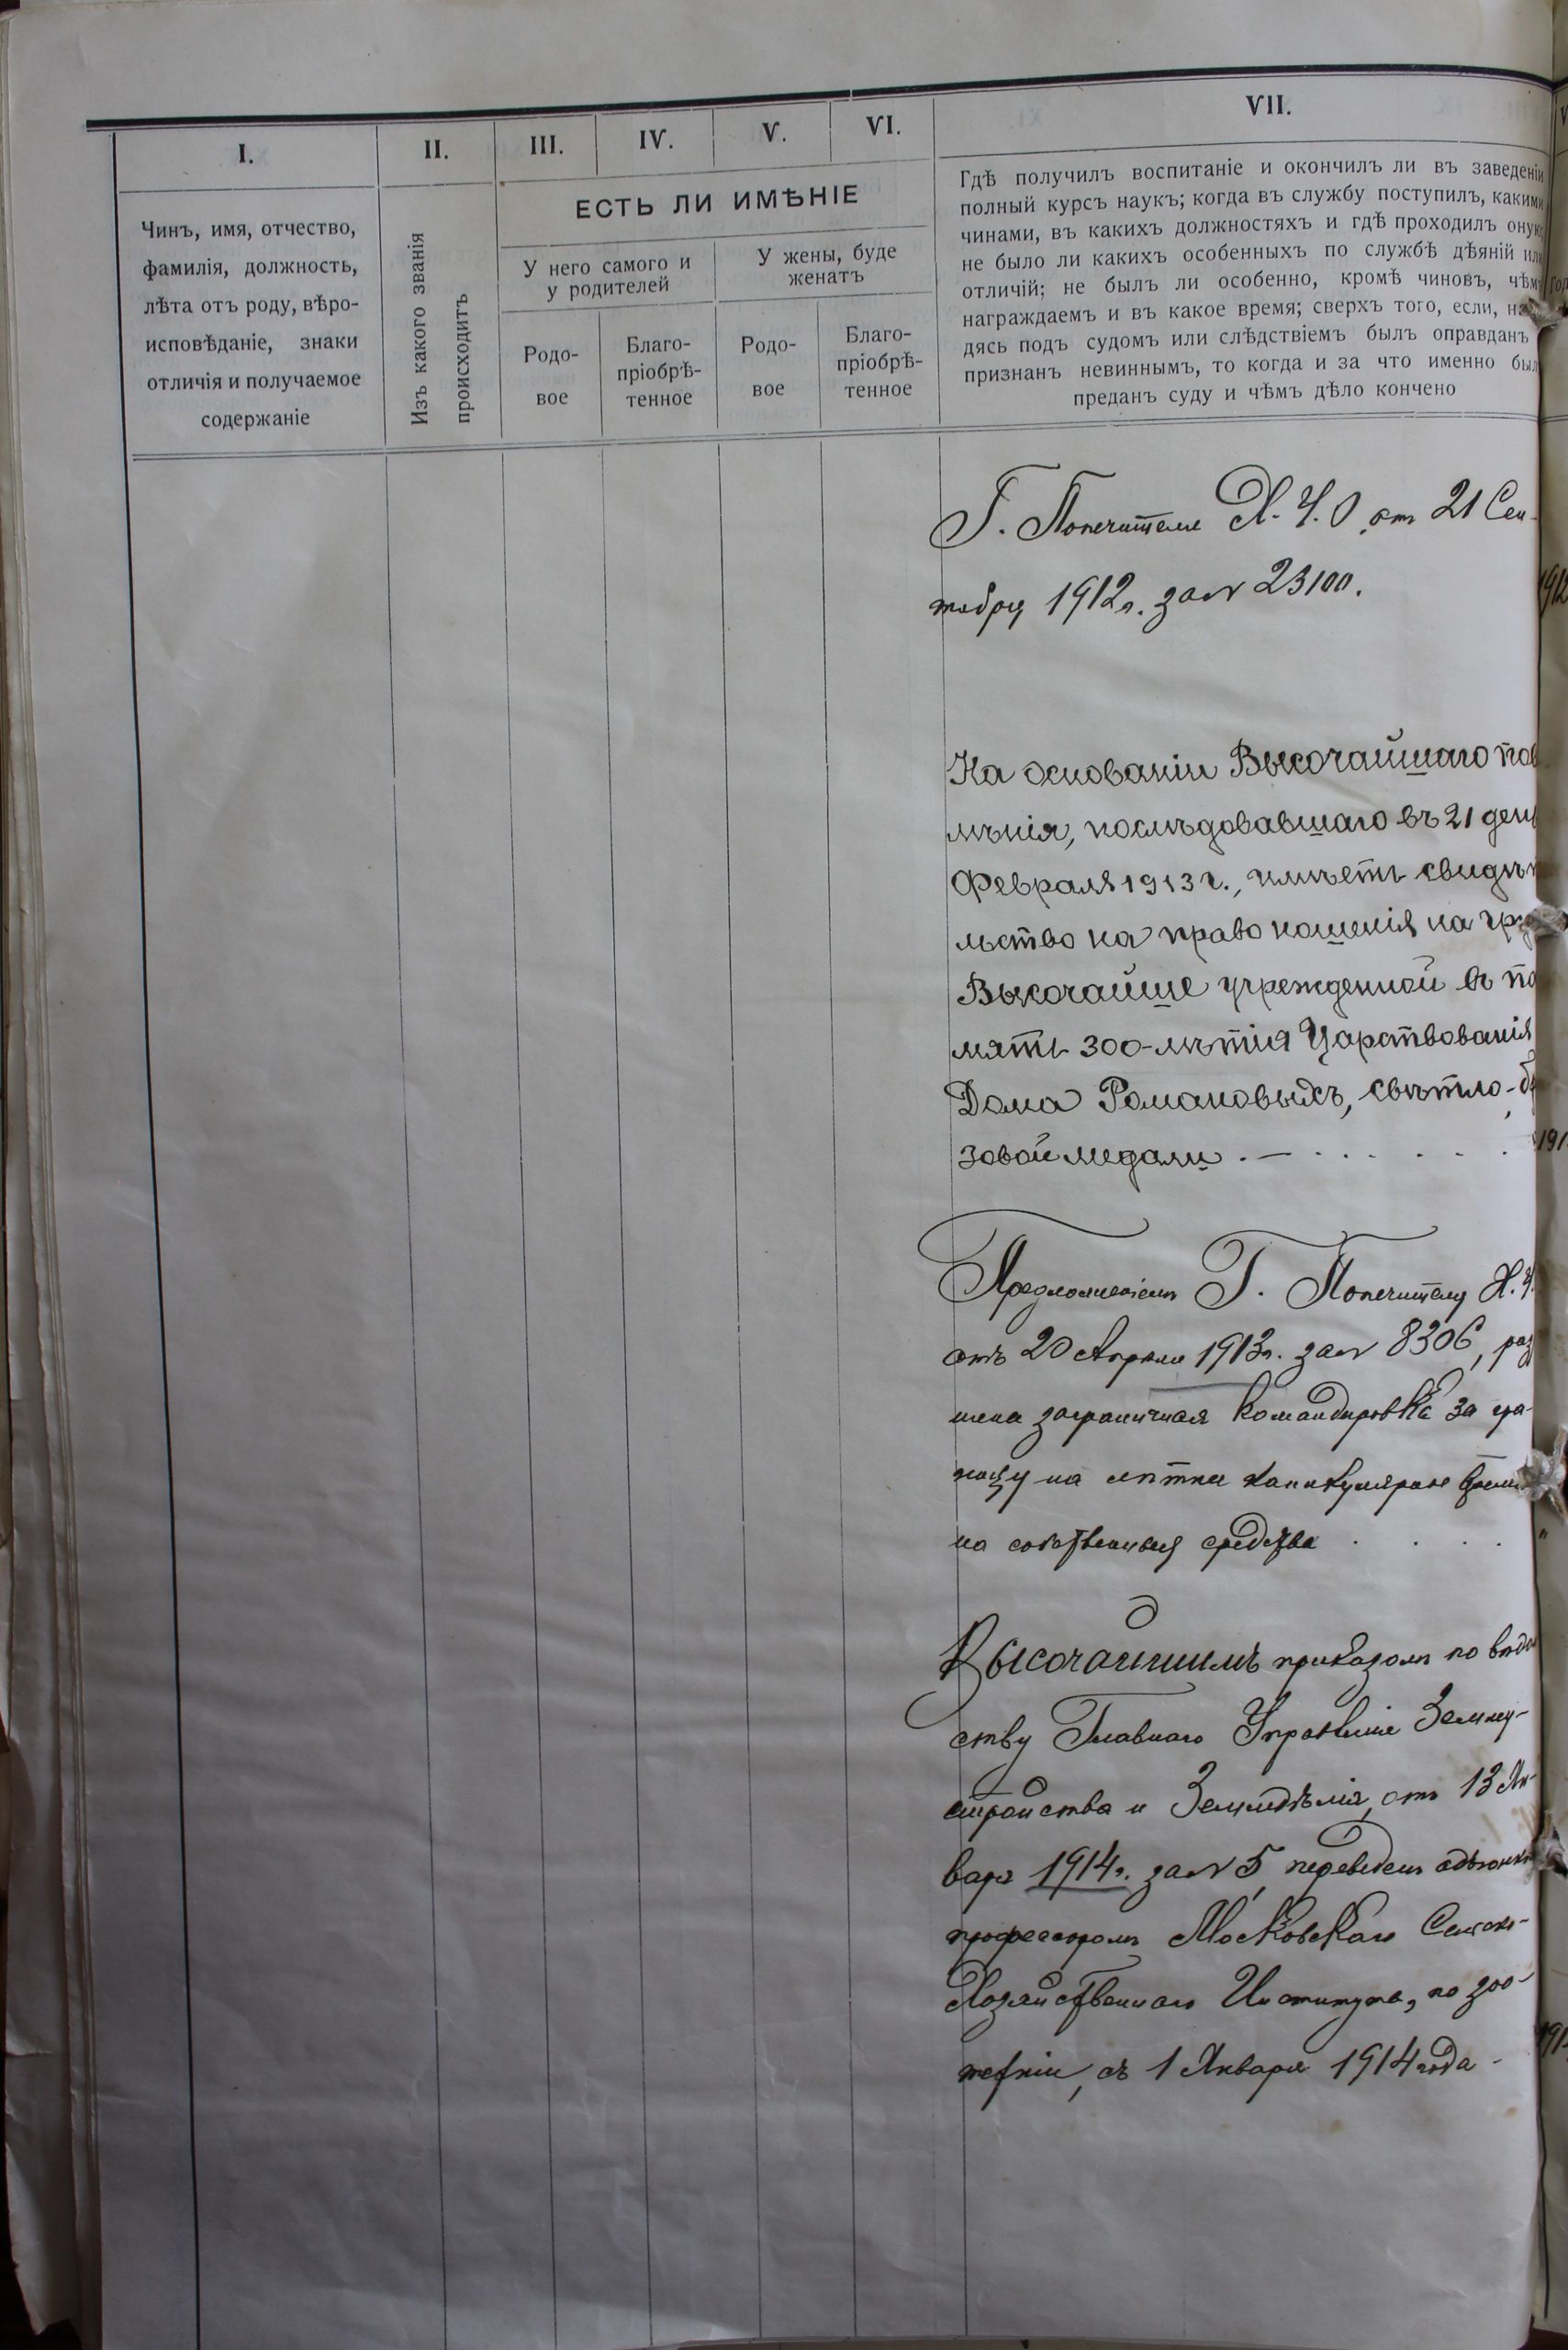 I.
II.
III.
IV.
V.
VI.
VII.
Чинъ, имя, отчество,
фамилія, должность,
лѣта отъ роду, вѣро-
исповѣданіе, знаки
отличія и получаемое
содержаніе
Изъ какого званія
происходитъ
ЕСТЬ ЛИ ИМѢНІЕ
У него самого и
у родителей
У жены, буде
женатъ
Родо-
вое
Благо-
пріобрѣ-
тенное
Родо-
вое
Благо-
пріобрѣ-
тенное
Гдѣ получилъ воспитаніе и окончилъ ли въ заведеніи
полный курсъ наукъ; когда въ службу поступилъ, какими
чинами, въ какихъ должностяхъ и гдѣ проходилъ оную
не было ли какихъ особенныхъ по службѣ дѣяній или
отличій; не былъ ли особенно, кромѣ чиновъ, чѣмъ
награждаемъ и въ какое время; сверхъ того, если, на
дясь подъ судомъ или слѣдствіемъ былъ оправданъ
признанъ невиннымъ, то когда и за что именно был
преданъ суду и чѣмъ дѣло кончено
Г. Попечителя Х. У. О. отъ 21 Сен-
тября 1912 г. за № 23100.
1912
На основаніи Высочайшаго пов
лѣнія, послѣдовавшаго въ 21 день
Февраля 1913 г., имѣетъ свидѣт
льство на право ношенія на гру
Высочайше учрежденной въ па
мять 300-лѣтія Царствованія
Дома Романовыхъ, свѣтло-б
зовой медали . — . . . . .
191
Предложеніемъ Г. Попечителя Х. У.
отъ 20 Апрѣля 1913 г. за № 8306, раз
шена заграничная командировка за гра-
ницу на лѣтнее каникулярное время
на собственныя средства . . . .
Высочайшимъ приказомъ по вѣдом
ству Главнаго Управленія Землеу-
стройства и Земледѣлія, отъ 13 Ян-
варя 1914 г. за № 5, переведенъ адъюнкт
профессоромъ Московскаго Сельско-
Хозяйственнаго Института, по зоо-
техніи, съ 1 Января 1914 года -
191